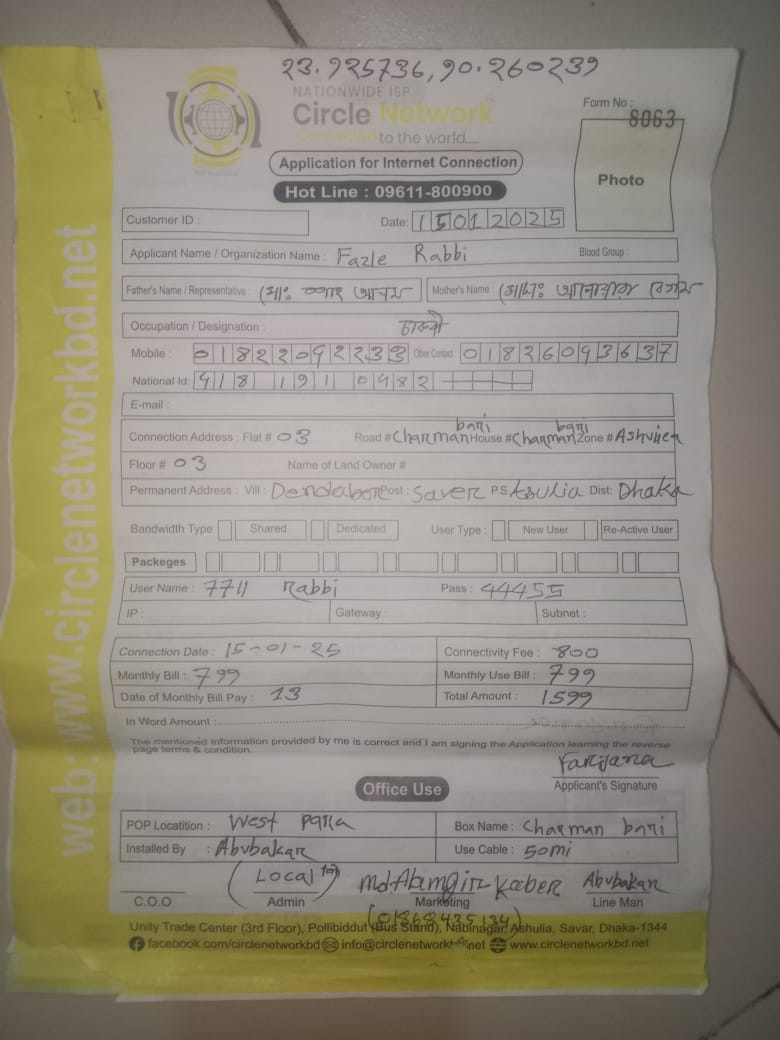 23.925736, 90.260239
NATIONWIDE ISP
Circle Network
Connected to the world.....
Form No : 8063
Photo
Application for Internet Connection
Hot Line : 09611-800900
Customer ID :
Date: 15012025
Applicant Name / Organization Name : Fazle Rabbi Blood Group :
Father's Name / Representative : মোঃ আলম Mother's Name : মোছাঃ আনোয়ারা বেগম
Occupation / Designation :
Mobile : 01822092233 Other Contact : 01826093637
National Id: 418 191 0482
E-mail :
Connection Address : Flat # 03 Road # Charman bari House # Charman bari Zone #
Floor # 03 Name of Land Owner #
Permanent Address : Vill : Dendabor Post : Saver P.S. Asulia Dist: Dhaka
Bandwidth Type Shared Dedicated User Type : New User Re-Active User
Packeges
User Name : 7711 Rabbi Pass : 44455
IP : Gateway : Subnet :
Connection Date : 15-01-25 Connectivity Fee : 800
Monthly Bill : 799 Monthly Use Bill : 799
Date of Monthly Bill Pay : 13 Total Amount : 1599
In Word Amount :
The mentioned information provided by me is correct and I am signing the Application learning the reverse
page terms & condition.
Farijana
Applicant's Signature
Office Use
POP Locatition : West Para Box Name : Charman bari
Installed By : Abubakar Use Cable : 50mi
(Local) Md-Alamgir Abubakar
C.O.O Admin Marketing Line Man
(01868435134)
Unity Trade Center (3rd Floor), Pollibiddut (Bus Stand), Nabinagar, Ashulia, Savar, Dhaka-1344
facebook.com/circlenetworkbd info@circlenetwork .net www.circlenetworkbd.net
web: www.circlenetworkbd.net